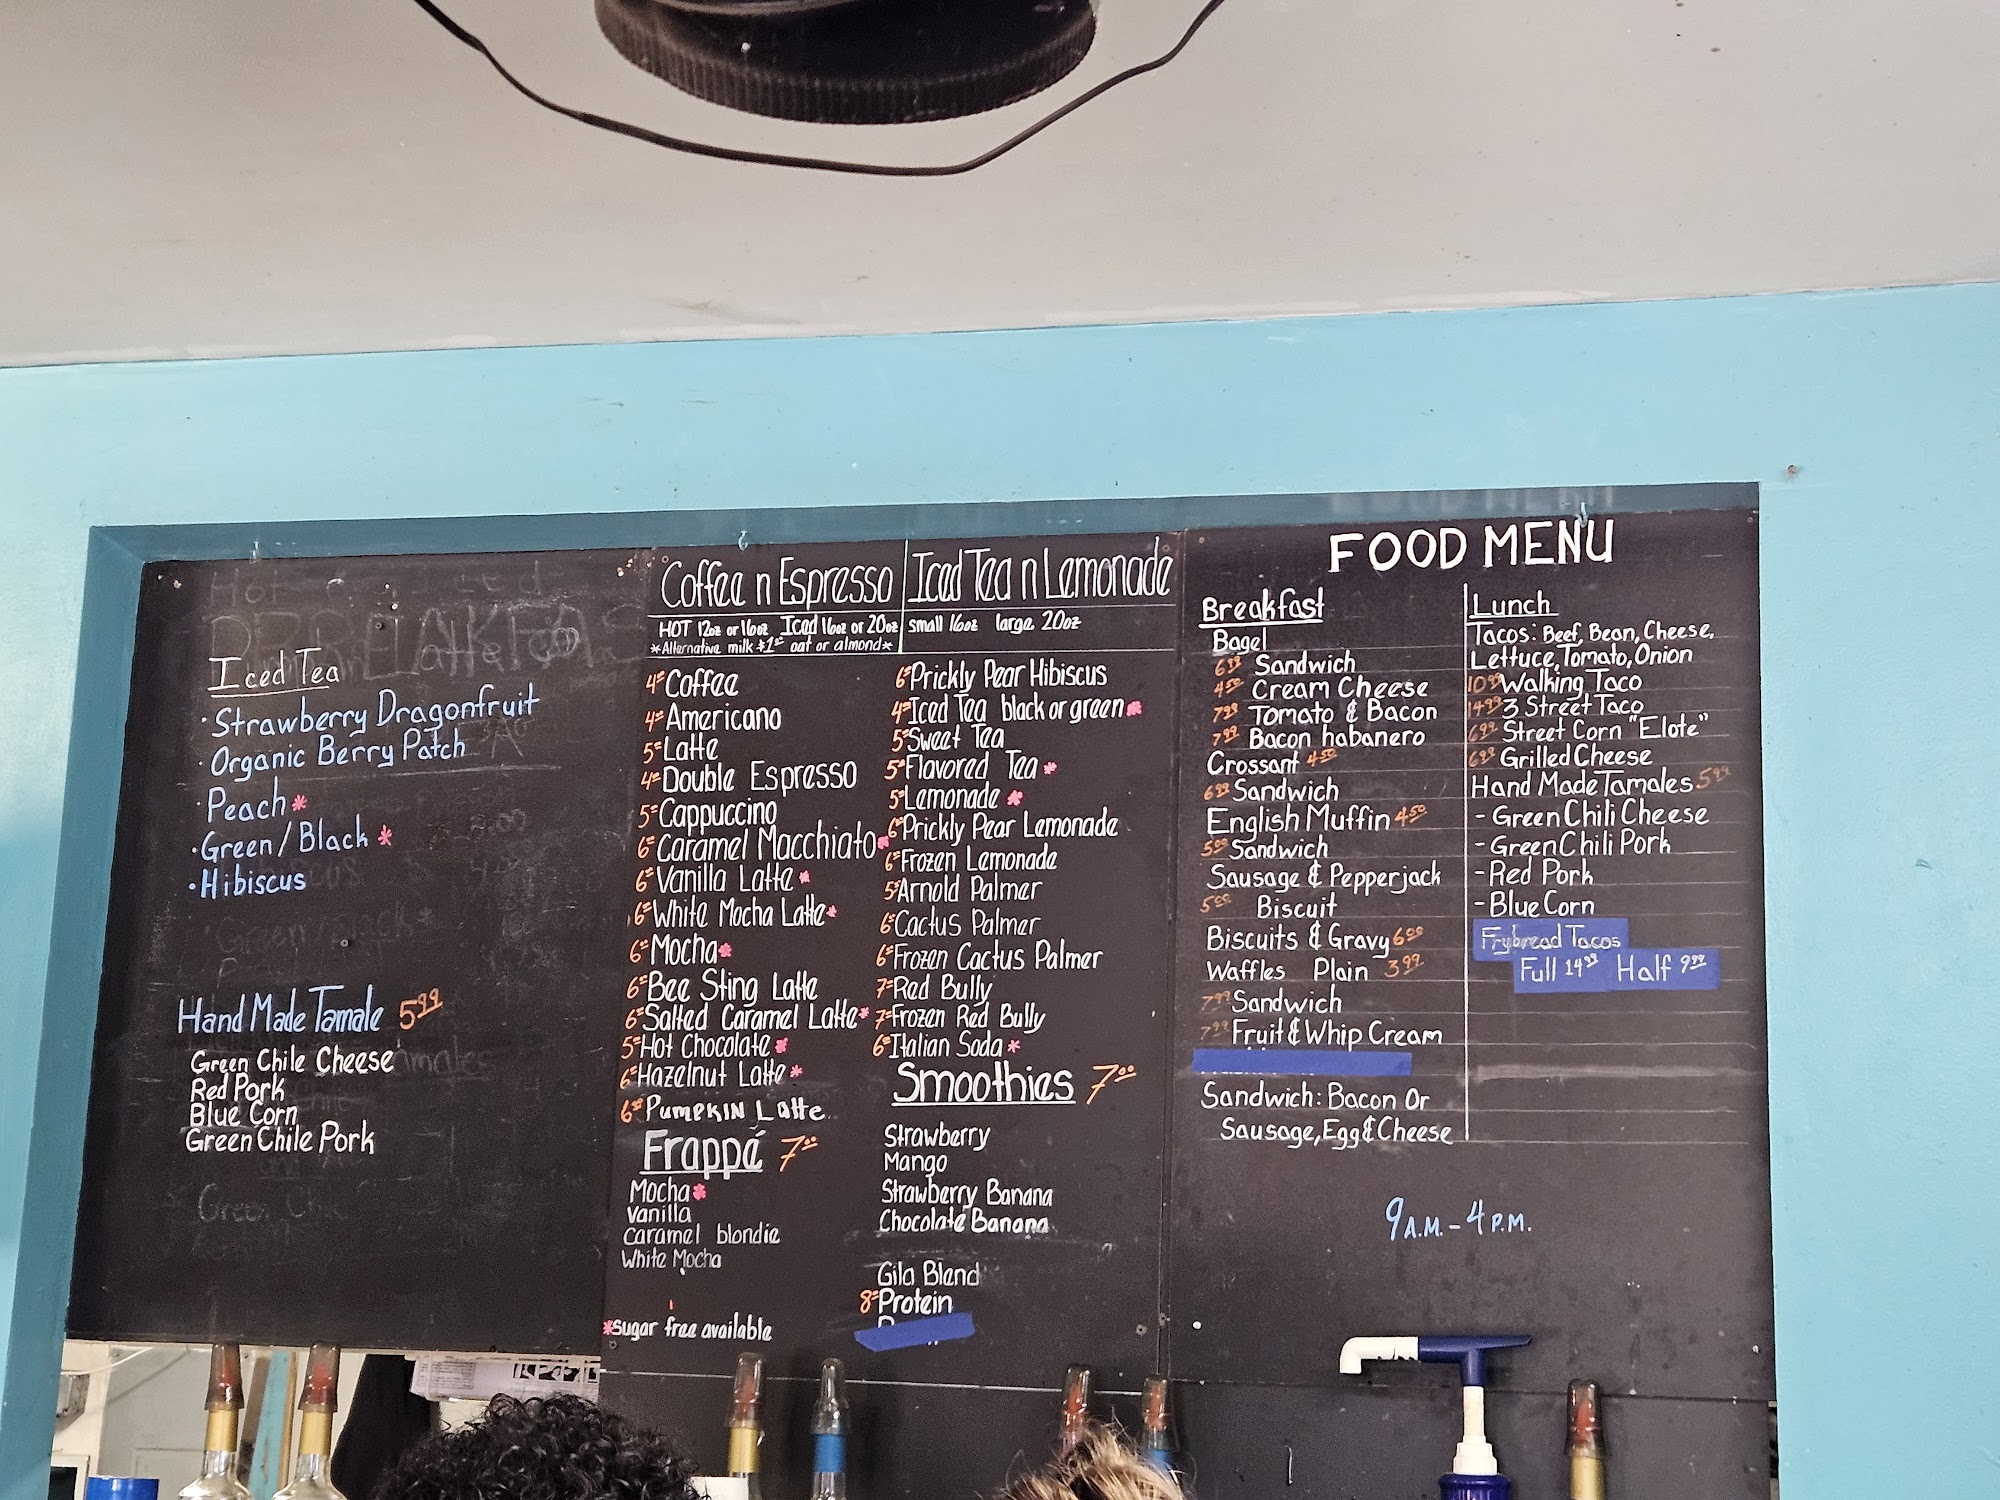 Iced Tea
· Strawberry Dragonfruit
· Organic Berry Patch
· Peach *
· Green / Black *
· Hibiscus
Hand Made Tamale 5⁹⁹
Green Chile Cheese
Red Pork
Blue Corn
Green Chile Pork
Coffee n Espresso
HOT 12oz or 16oz Iced 16oz or 20oz
*Alternative milk $1⁰⁰ oat or almond*
4⁼ Coffee
4⁼ Americano
5⁼ Latte
4⁼ Double Espresso
5⁼ Cappuccino
6⁼ Caramel Macchiato *
6⁼ Vanilla Latte *
6⁼ White Mocha Latte *
6⁼ Mocha *
6⁼ Bee Sting Latte
6⁼ Salted Caramel Latte *
5⁼ Hot Chocolate *
6⁼ Hazelnut Latte *
6⁰⁰ Pumpkin Latte
Frappé 7⁰⁰
Mocha *
Vanilla
Caramel blondie
White Mocha
*sugar free available
Iced Tea n Lemonade
small 16oz large 20oz
6⁼ Prickly Pear Hibiscus
4⁼ Iced Tea black or green *
5⁼ Sweet Tea
5⁼ Flavored Tea *
5⁼ Lemonade *
6⁼ Prickly Pear Lemonade
6⁼ Frozen Lemonade
5⁼ Arnold Palmer
6⁼ Cactus Palmer
6⁼ Frozen Cactus Palmer
7⁼ Red Bully
7⁼ Frozen Red Bully
6⁼ Italian Soda *
Smoothies 7⁰⁰
Strawberry
Mango
Strawberry Banana
Chocolate Banana
Gila Blend
8⁼ Protein
FOOD MENU
Breakfast
Bagel
6⁹⁹ Sandwich
4⁵⁰ Cream Cheese
7⁹⁹ Tomato & Bacon
7⁹⁹ Bacon habanero
Crossant 4⁵⁰
6⁹⁹ Sandwich
English Muffin 4⁵⁰
5⁹⁹ Sandwich
Sausage & Pepperjack
5⁹⁹ Biscuit
Biscuits & Gravy 6⁹⁹
Waffles Plain 3⁹⁹
7⁹⁹ Sandwich
7⁹⁹ Fruit & Whip Cream
Sandwich: Bacon Or
Sausage, Egg & Cheese
Lunch
Tacos: Beef, Bean, Cheese,
Lettuce, Tomato, Onion
10⁹⁹ Walking Taco
14⁹⁹ 3 Street Taco
6⁹⁹ Street Corn "Elote"
6⁹⁹ Grilled Cheese
Hand Made Tamales 5⁹⁹
- Green Chili Cheese
- Green Chili Pork
- Red Pork
- Blue Corn
Frybread Tacos
Full 14⁹⁹ Half 9⁹⁹
9 A.M. - 4 P.M.